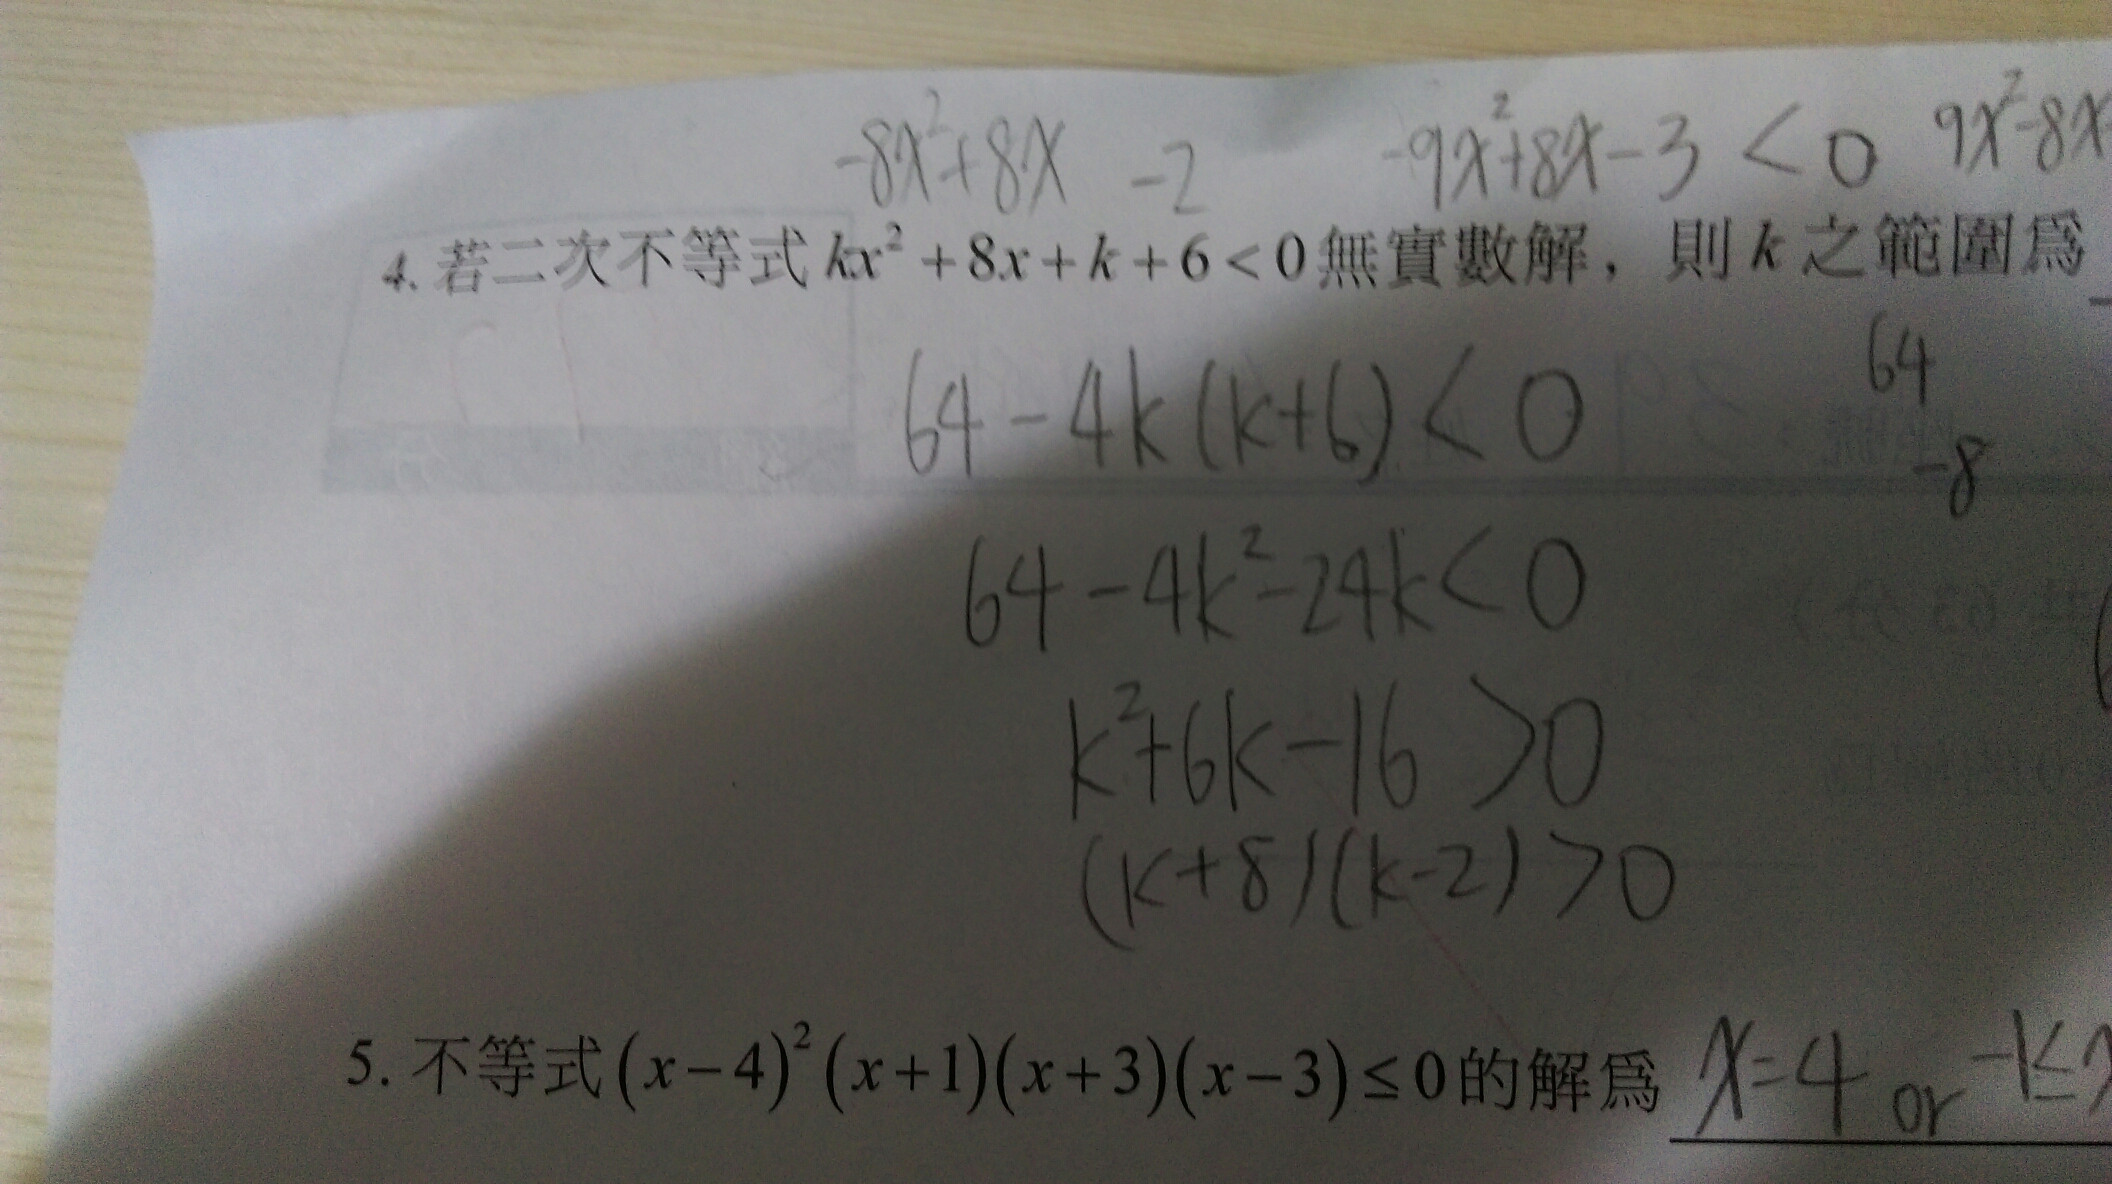 -8x²+8x -2 -9x²+8x-3<0 9x²-8x
4. 若二次不等式 kx² + 8x + k + 6 < 0 無實數解，則 k 之範圍為
64
64-4k(k+6)<0
-8
64-4k²-24k<0
k²+6k-16>0
(k+8)(k-2)>0
5. 不等式 (x-4)² (x+1)(x+3)(x-3) ≤ 0 的解為 x=4 or -1≤x